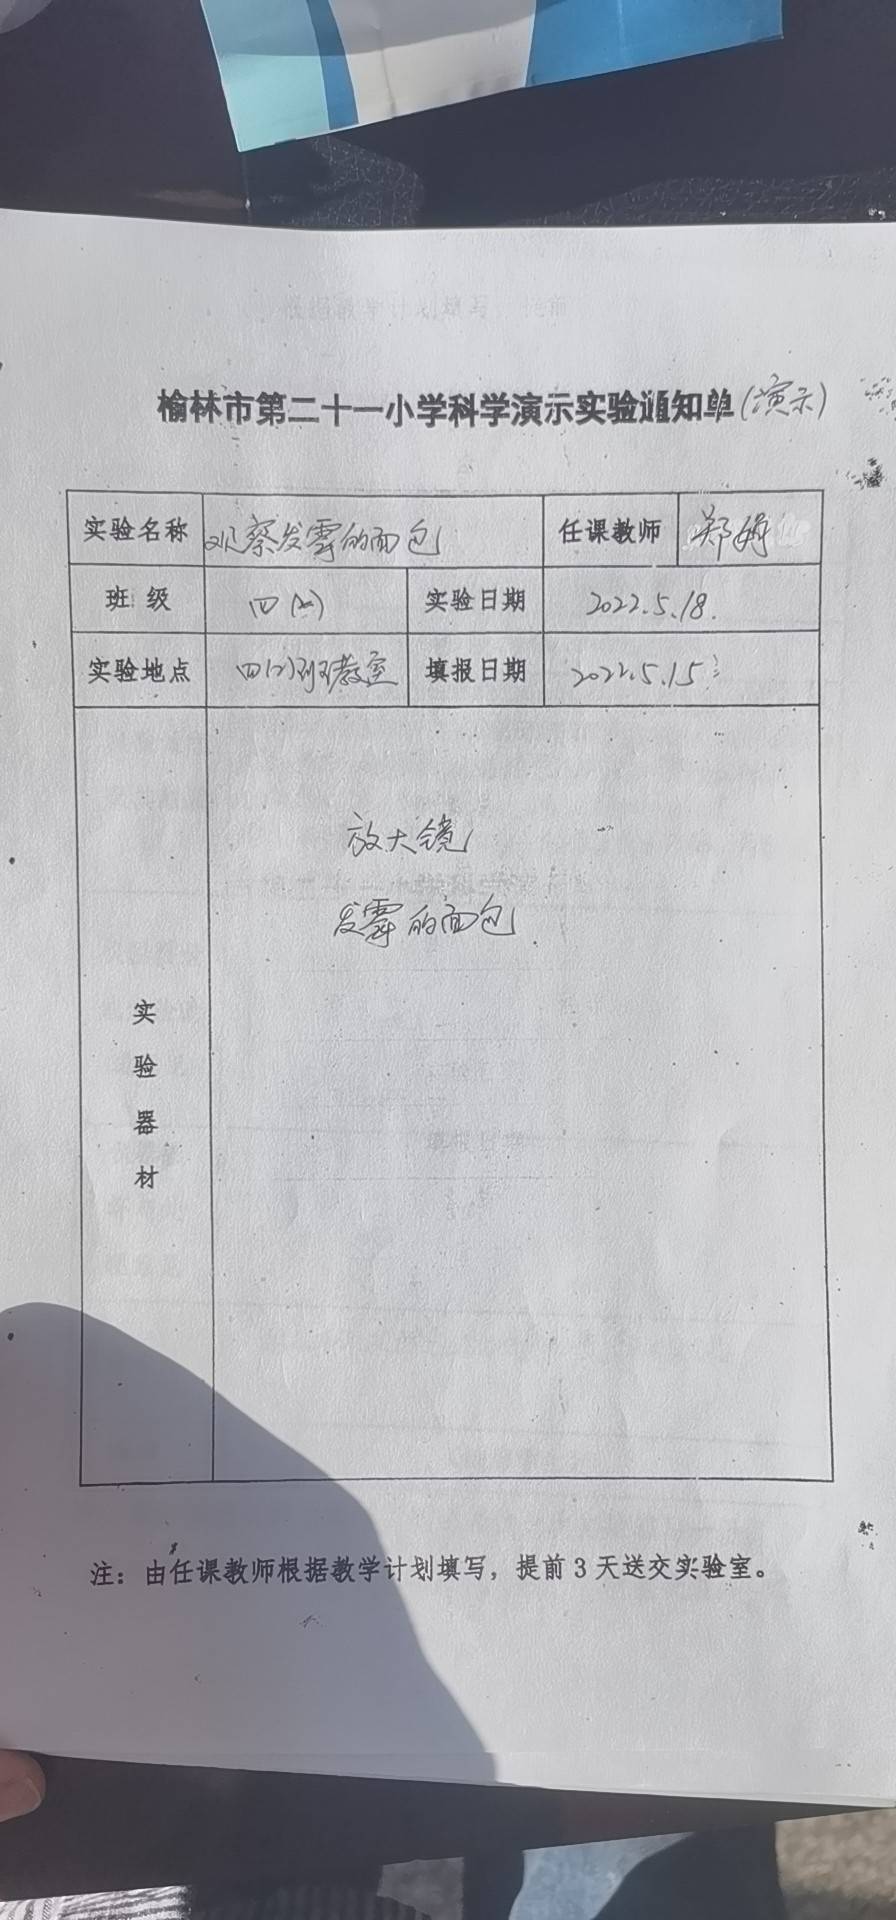 榆林市第二十一小学科学演示实验通知单(演示)
实验名称 观察发霉的面包 任课教师 郑娟
班 级 四(二) 实验日期 2022.5.18.
实验地点 四(2)班教室 填报日期 2022.5.15
放大镜
发霉的面包
实验器材
注：由任课教师根据教学计划填写，提前 3 天送交实验室。